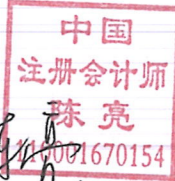 中国
注册会计师
陈亮
110001670154